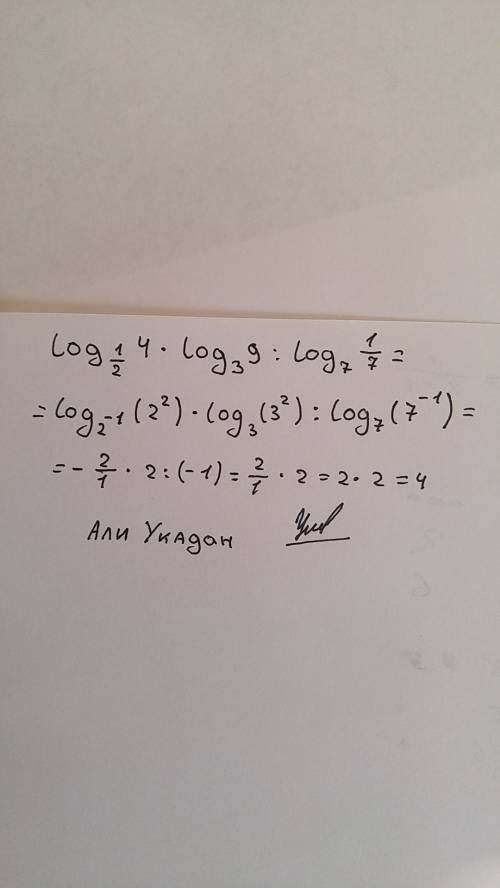 log_{\frac{1}{2}} 4 · log_3 9 : log_7 \frac{1}{7} =
= log_{2^{-1}} (2^2) · log_3 (3^2) : log_7 (7^{-1}) =
= - \frac{2}{1} · 2 : (-1) = \frac{2}{1} · 2 = 2 · 2 = 4
Али Укадан